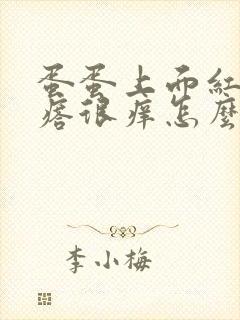 蛋蛋上面紅
痞很痒怎麼
李小梅